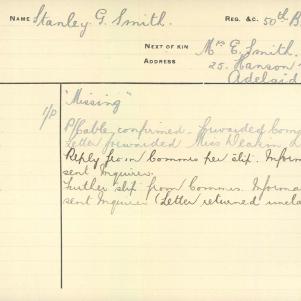 NAME Stanley G. Smith. REG. &C. 50th B
NEXT OF KIN Mrs E. Smith.
ADDRESS 25. Hanson
Adelaid
"Missing"
1/P P/Cable confirmed. forwarded Comp
Letter forwarded Miss Deasm L
Reply from Commes per slip. Inform
sent Inquirer.
Further slip from Commes. Informa
sent Inquirer (Letter returned uncla